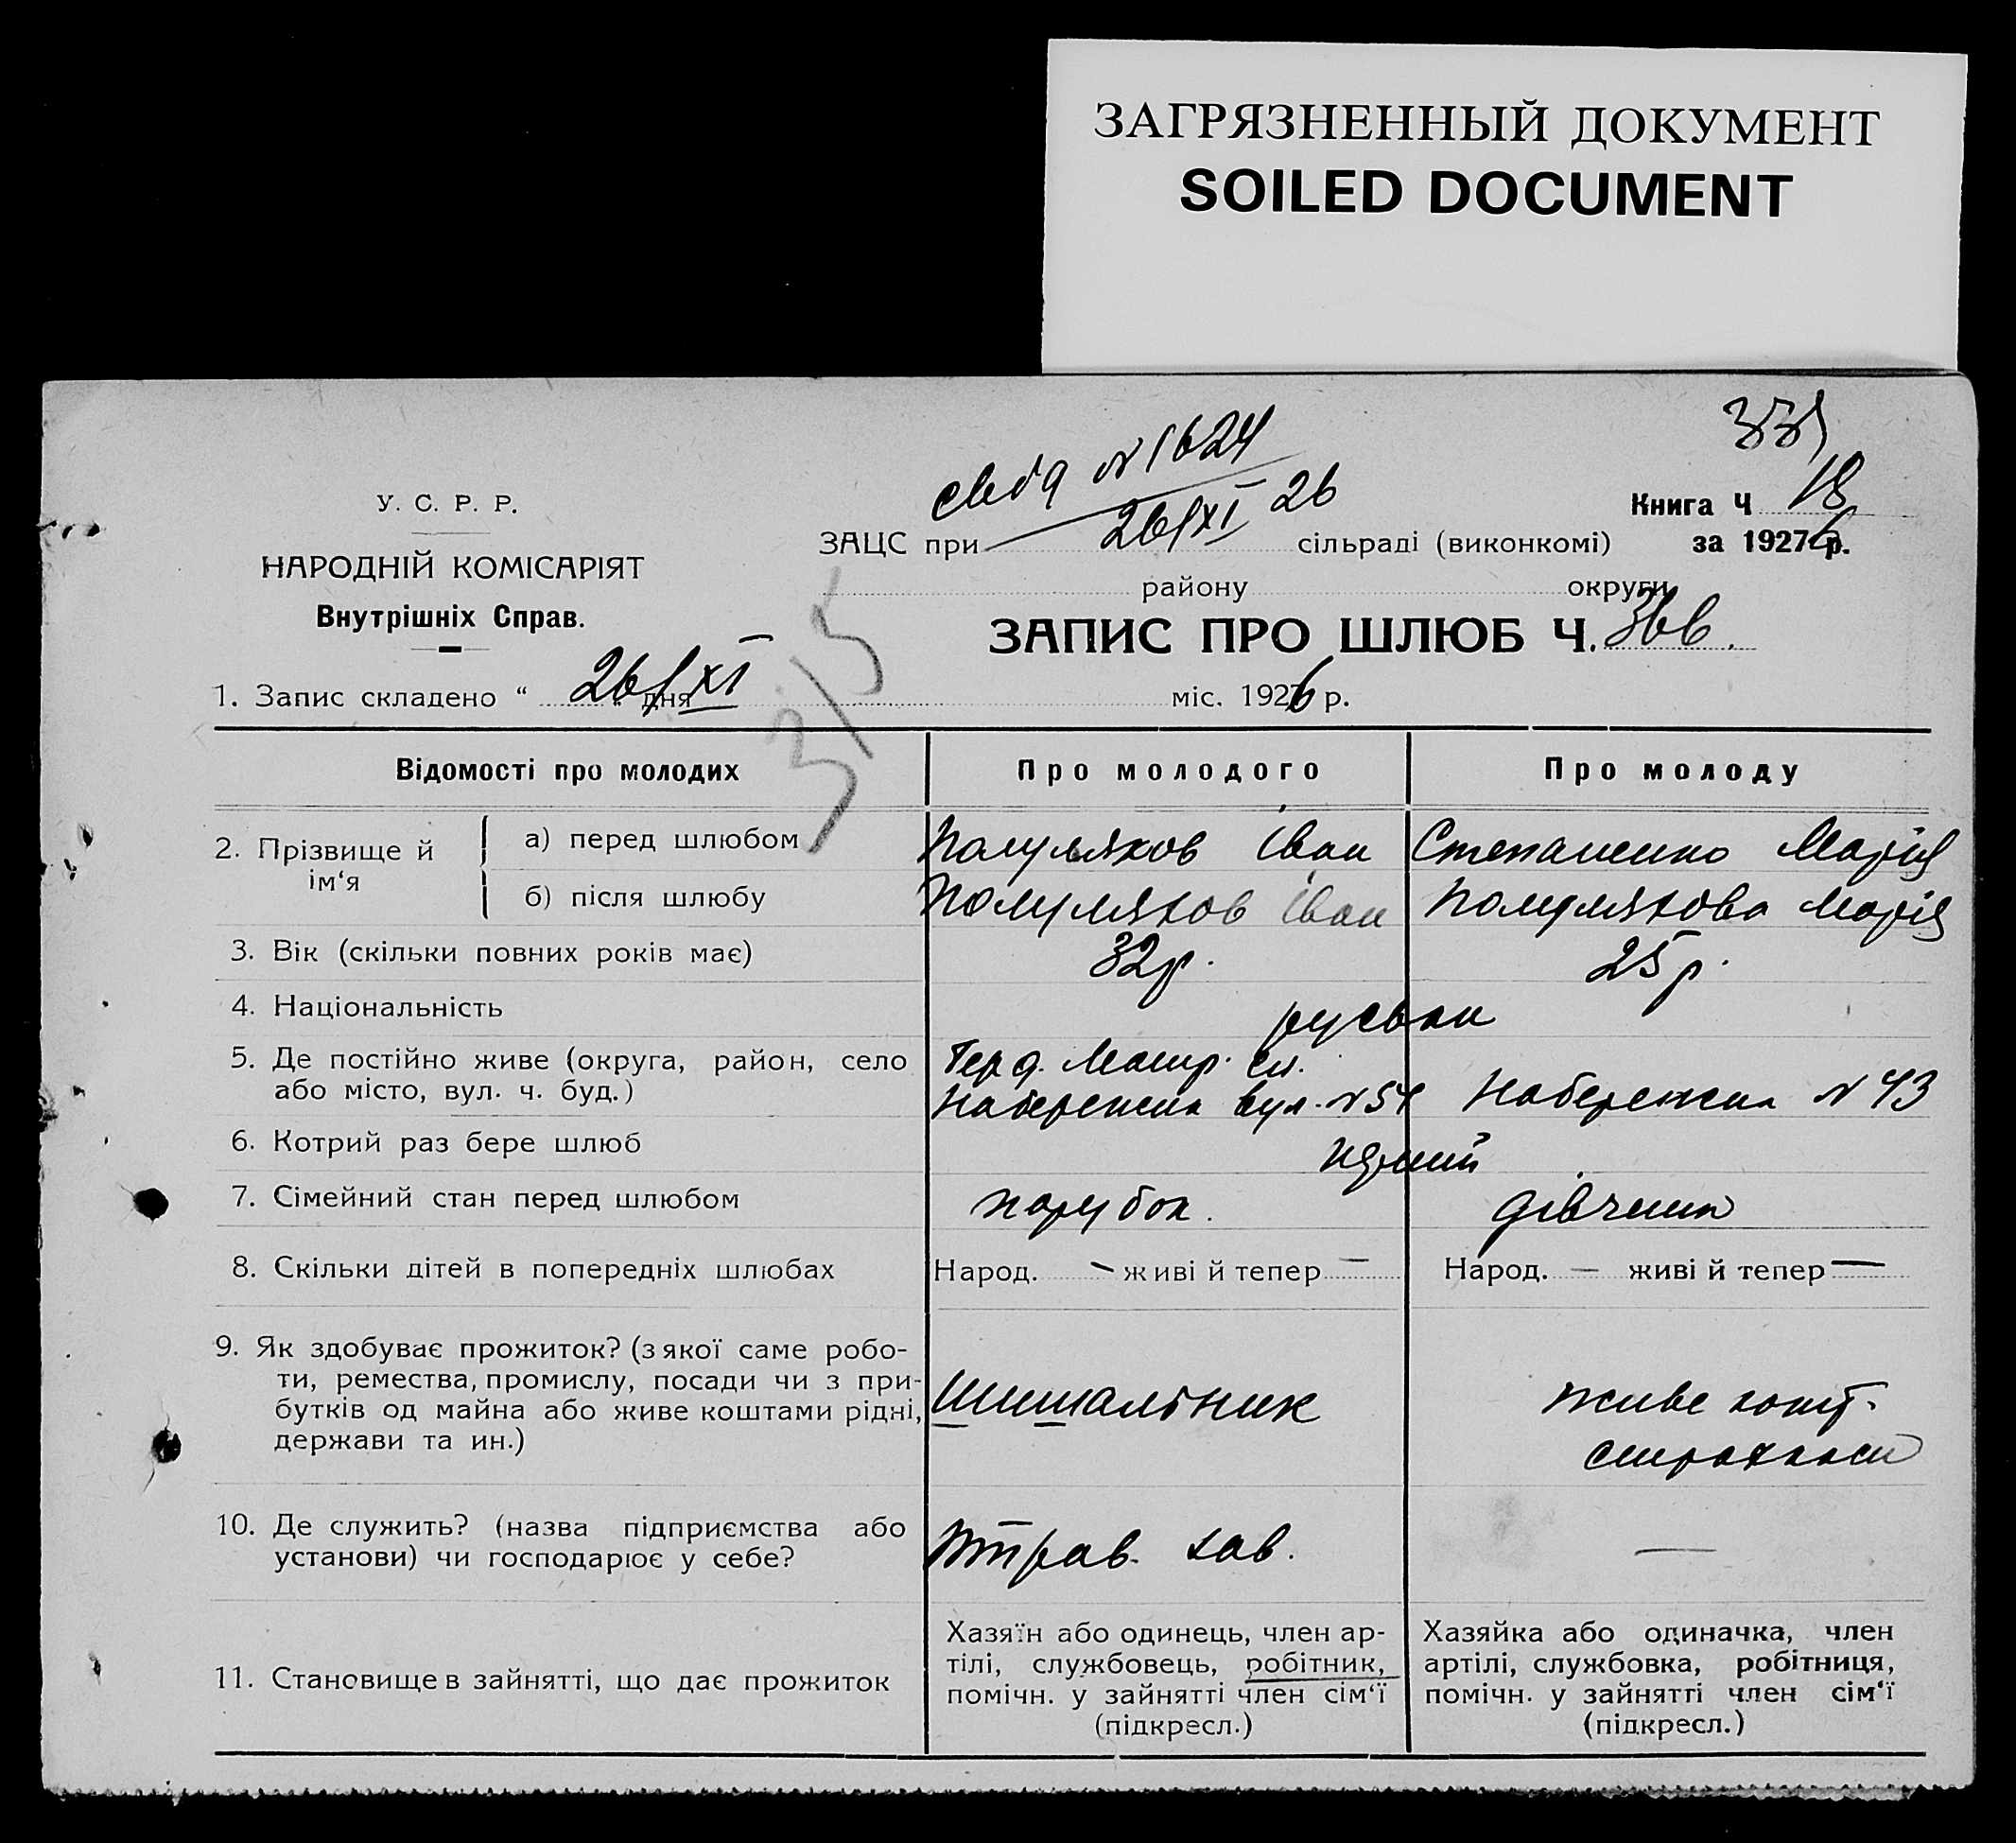 ЗАГРЯЗНЕННЫЙ ДОКУМЕНТ
SOILED DOCUMENT
335
У. С. Р. Р.
НАРОДНІЙ КОМІСАРІЯТ
Внутрішніх Справ.
N 1624
26/XI 26
Книга Ч 18
ЗАЦС при сільраді (виконкомі) за 1926 р.
району округи
ЗАПИС ПРО ШЛЮБ Ч. 366.
315
1. Запис складено “ 26/XI дня міс. 1926 р.
Відомості про молодих Про молодого Про молоду
2. Прізвище й ім‘я
а) перед шлюбом Іван Степаненко Марія
б) після шлюбу Іван Марія
3. Вік (скільки повних років має) 32 р. 25 р.
4. Національність
5. Де постійно живе (округа, район, село
або місто, вул. ч. буд.) вул. N 54 Набережна N 43
6. Котрий раз бере шлюб
7. Сімейний стан перед шлюбом парубок. дівчина
8. Скільки дітей в попередніх шлюбах Народ. — живі й тепер — Народ. — живі й тепер —
9. Як здобуває прожиток? (з якої саме робо-
ти, ремества, промислу, посади чи з при-
бутків од майна або живе коштами рідні,
держави та ин.)
живе
10. Де служить? (назва підприємства або
установи) чи господарює у себе?
—
11. Становище в зайнятті, що дає прожиток
Хазяїн або одинець, член ар-
тілі, службовець, робітник,
помічн. у зайнятті член сім‘ї
(підкресл.)
Хазяйка або одиначка, член
артілі, службовка, робітниця,
помічн. у зайнятті член сім‘ї
(підкресл.)